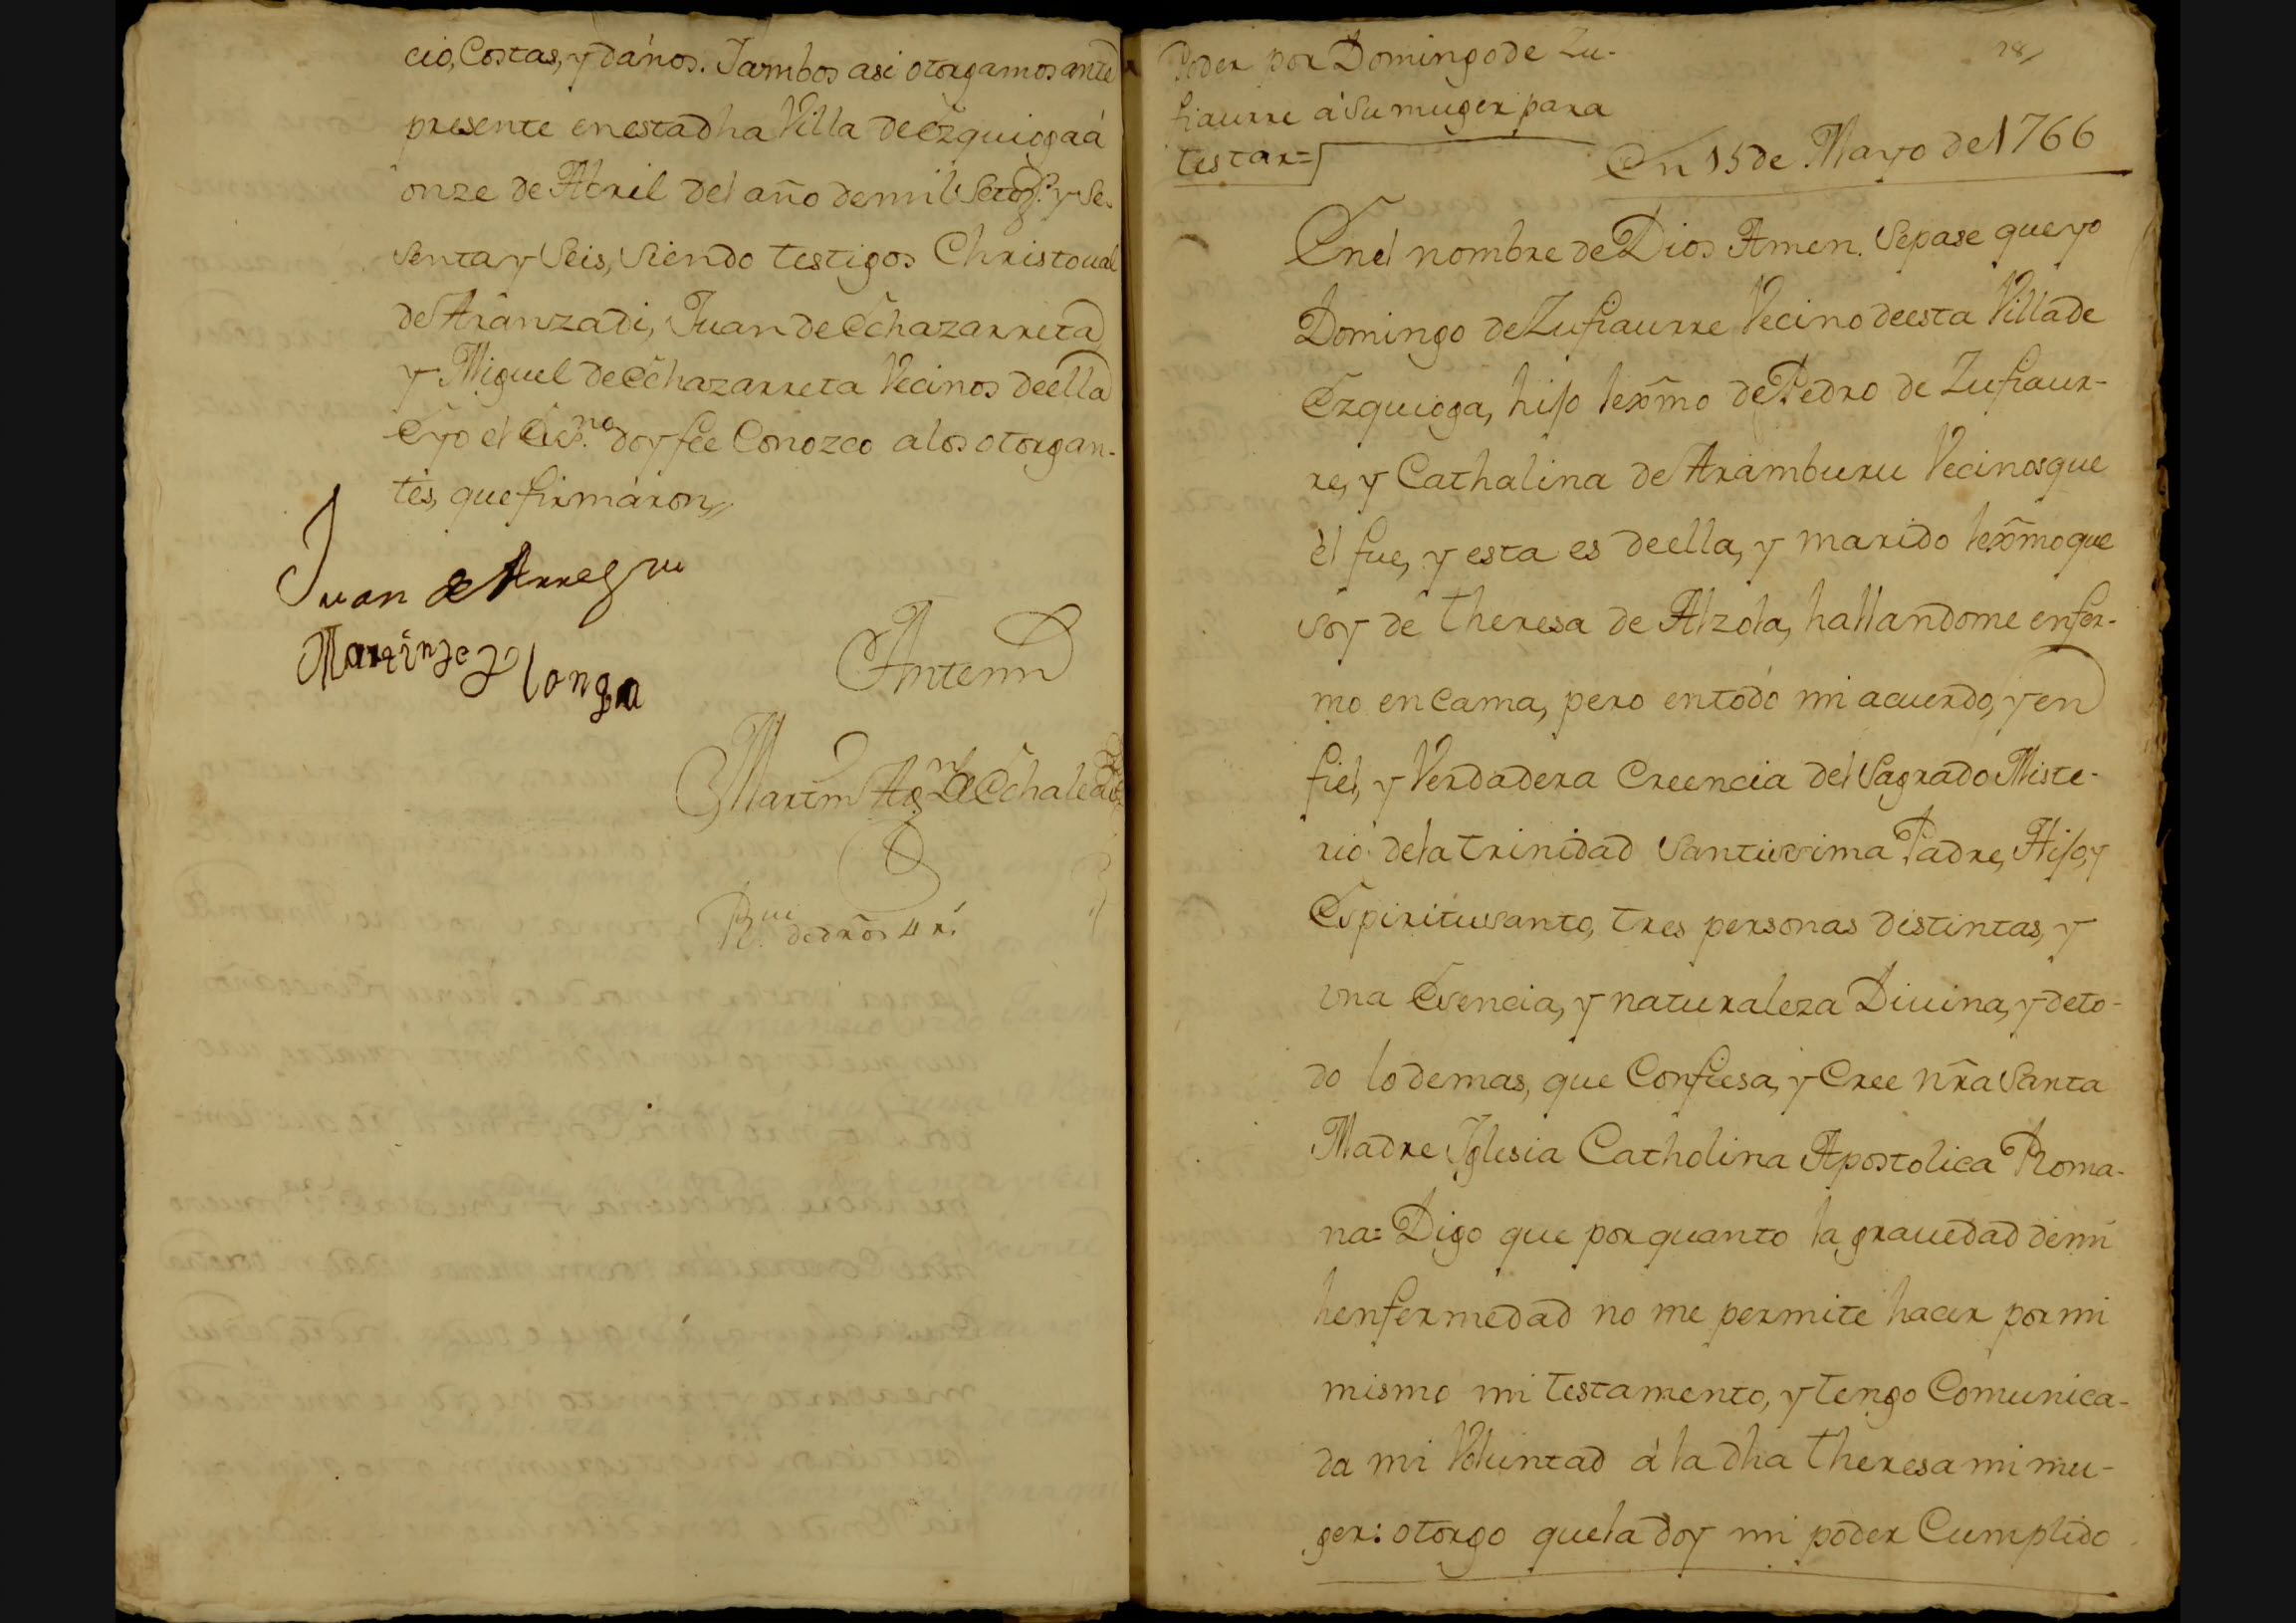 cio, Costas, y dános. Jambos asi otorgamos ante
presente en esta dha Villa de Ezquioga á
onze de Abril del año de mil Setos. y Se-
senta y Seis, Siendo testigos Christoual
de Aranzadi, Juan de Echazarreta
y Miguel de Echazarreta Vecinos de ella
E yo el Essno. doy fee Conozco a los otorgan-
tes, que firmáron,,
Juan de Arregui
Martin de Elonga
Antemi
Martin Agn de Echale
R. de dros 4 rs.
28,,
Poder por Domingo de Zu-
fiaurre á Su muger para
testar=
En 15 de Mayo de 1766
En el nombre de Dios Amen. Sepase que yo
Domingo de Zufiaurre Vecino de esta Villa de
Ezquioga, hijo lexmo de Pedro de Zufiaur-
re, y Cathalina de Aramburu Vecinos que
él fue, y esta es de ella, y marido lexmo que
soy de Theresa de Alzola, hallandome enfer-
mo en cama, pero en todo mi acuerdo, y en
fiel, y Verdadera Creencia del Sagrado Miste-
rio de la trinidad Santissima Padre, Hijo, y
Espiritusanto, tres personas distintas, y
vna Esencia, y naturaleza Diuina, y de to-
do lo demas, que Confiesa, y Cree nra Santa
Madre Iglesia Catholina Apostolica Roma-
na= Digo que por quanto la grauedad de mi
henfermedad no me permite hacer por mi
mismo mi testamento, y tengo Comunica-
da mi Voluntad á la dha Theresa mi mu-
ger: otorgo que la doy mi poder Cumplido